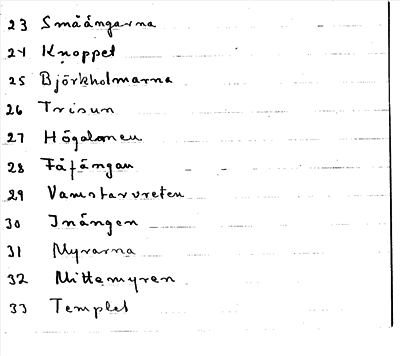 23 Småängarna
24 Knoppet
25 Björkholmarna
26 Trisun
27 Högalmen
28 Fåfängan
29 Vamstavreten
30 Inängen
31 Myrarna
32 Mittemyren
33 Templet